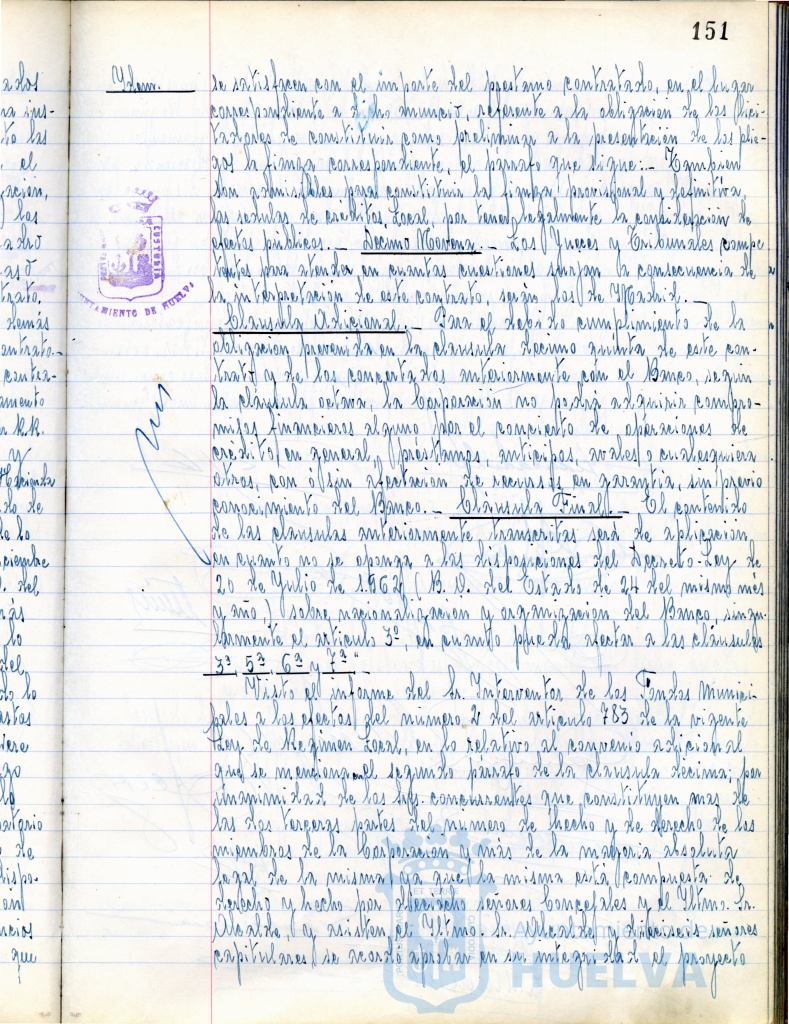 151
Idem.
se satisfacen con el importe del prestamo contratado, en el lugar
correspondiente a dicho anuncio, referente a la obligacion de los lici-
tadores de constituir como preliminar a la presentación de los plie-
gos la fianza correspondiente, el parrafo que sigue:- Tambien
son admisibles para constituir la fianza provisional y definitiva,
las cedulas de créditos Local, por tener legalmente la consideración de
efectos públicos.- Decimo Novena.- Los Jueces y Tribunales compe
tentes para atender en cuantas cuestiones surjan a consecuencia de
la interpretación de este contrato, serán los de Madrid.-
Clausula Adicional.- Para el debido cumplimiento de la
obligacion prevenida en la clausula decimo quinta de este con-
trato y de los concertados anteriormente con el Banco, segun
la clausula octava, la Corporación no podrá adquirir compro-
misos financieros alguno por el concierto de operaciones de
crédito en general, préstamos, anticipos, avales o cualesquiera
otros, con o sin afectacion de recursos en garantia, sin previo
conocimiento del Banco.- Cláusula Final.- El contenido
de las clausulas anteriormente transcritas será de aplicación,
en cuanto no se oponga a las disposiciones del Decreto-Ley de
20 de Julio de 1.962 (B. O. del Estado de 24 del mismo mes
y año,) sobre nacionalización y organización del Banco, singu-
larmente el articulo 3º, en cuanto pueda afectar a las cláusulas
3ª, 5ª, 6ª y 7ª"-
Visto el informe del Sr. Interventor de los Fondos Munici-
pales a los efectos del número 2 del articulo 783 de la vigente
Ley de Regimen Local, en lo relativo al convenio adicional
que se menciona en el segundo párrafo de la clausula decima; por
unanimidad de los Sres. concurrentes que constituyen mas de
las dos terceras partes del número de hecho y de derecho de los
miembros de la Corporación y más de la mayoria absoluta
legal de la misma, ya que la misma está compuesta de
derecho y hecho por dieciocho señores Concejales y el Iltmo. Sr.
Alcalde, y asisten el Iltmo. Sr. Alcalde y dieciseis señores
capitulares, se acordo aprobar en su integridad el proyecto
CUSTODIA
AYUNTAMIENTO DE HUELVA
Ayuntamiento de
HUELVA